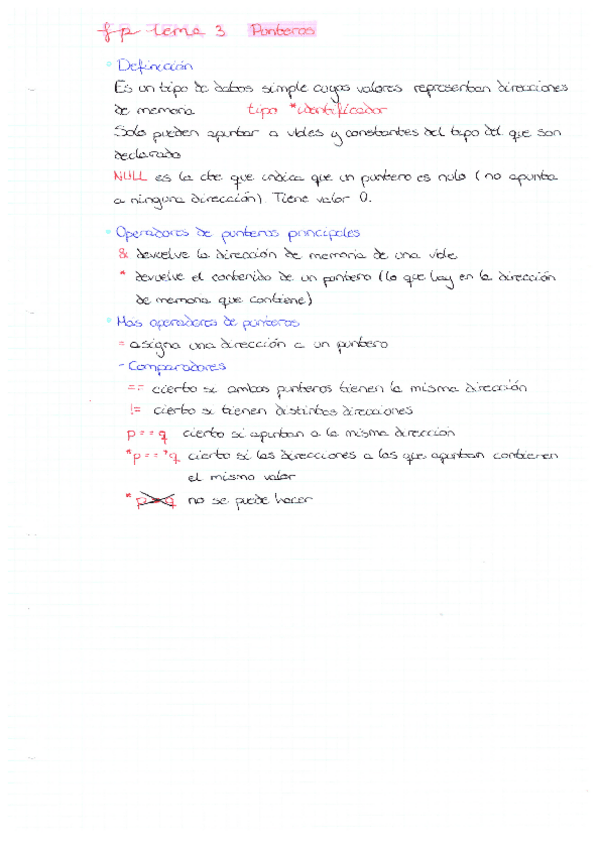 fp tema 3 Punteros
Definición
Es un tipo de datos simple cuyos valores representan direcciones
de memoria tipo *identificador
Solo pueden apuntar a vbles y constantes del tipo del que son
declarado
NULL es la cte que indica que un puntero es nulo (no apunta
a ninguna dirección). Tiene valor 0.
Operadores de punteros principales
& devuelve la dirección de memoria de una vble
* devuelve el contenido de un puntero (lo que hay en la dirección
de memoria que contiene)
Más operadores de punteros
= asigna una dirección a un puntero
- Comparadores
== cierto si ambos punteros tienen la misma dirección
!= cierto si tienen distintas direcciones
p==q cierto si apuntan a la misma dirección
*p==*q cierto si las direcciones a las que apuntan contienen
el mismo valor
* no se puede hacer